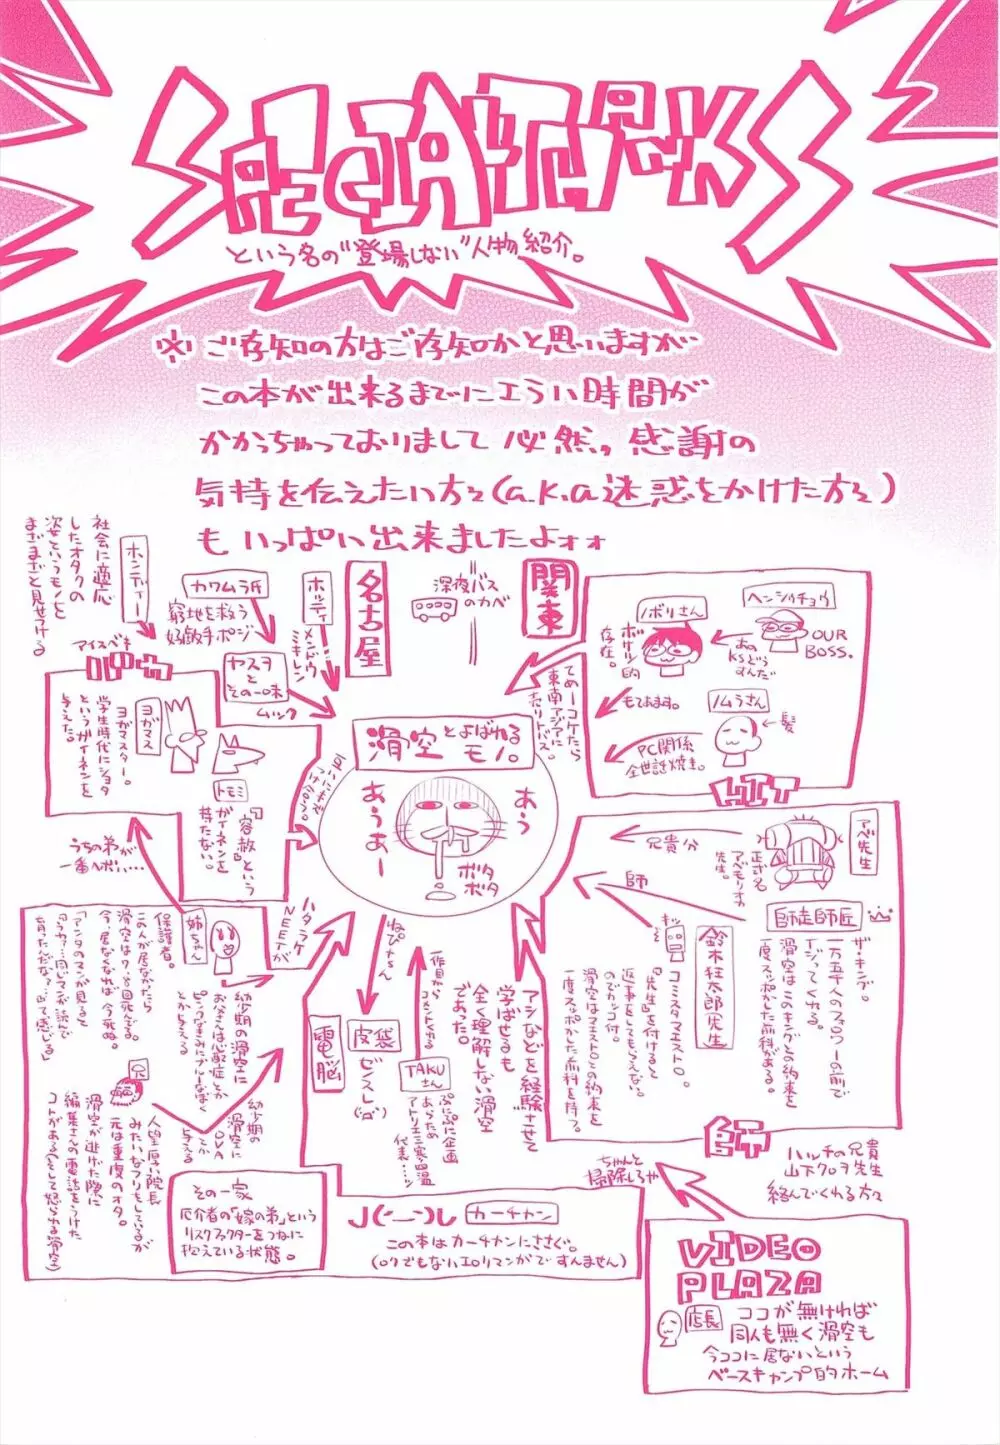 SPECIAL THANKS
という名の"登場しない"人物紹介。
※ご存知の方はご存知かと思いますれ…
この本が出来るまでにエラい時間が
かかっちゃっておりまして必然、感謝の
気持を伝えたい方々(a.k.a迷惑をかけた方々)
もいっぱい出来ましたよォォ
社会に適応
したオタクの
姿というモノを
まざまざと見せつける
ホンディー
カワムラ氏
窮地を救う
好敵手ポジ
ホッティ
名古屋
深夜バス
のカベ
関東
ノボリさん
存在。
ヘンシゥチョウ
OUR
BOSS.
あの
KSどう
すんだ
もておます。
ノムラさん
髪
PC関係
全世話焼き。
てめーコケたら
東南アジアに
売りトバス。
アイスペキ
ヤスヲ
とその一味
ムック
ヨガマス
ヨガマスター。
学生時代にショタ
というガイネンを
与えた。
トモミ
『容赦』という
ガイネンを
持たない。
滑空とよばれる
モノ。
あう
あうあー
ボタ
ボタ
うちの弟が
一番へボい…
兄貴分
師
アベ先生
正式名
アベモリオカ
先生。
師走師匠
ザ・キング。
一万五千人のフォロワーの前で
イジってくれる。
滑空はこのキングとの約束を
一度スッポかした前科がある。
鈴木狂太郎[先生]
コミスタマエストロ。
『先生』を付けると
返事をしてもらえない
のでカッコ付。
滑空はマエストロとの約束を
一度スッポかした前科を持つ。
師
ハルチの兄貴
山下クロヲ先生
絡んでくれる方々
姉ちゃん
保護者。
この人が居なかったら
滑空は7、8回死んでる。
今、居なくなれば今死ぬ。
「アンタのマンガ見ると
『うわァ…同じマンガ読んで
育ったんだな?』って感じる」
ハタラケ
NEETが
幼少期の滑空に
お父さんは心配症とか
ピンクなきみにブルーなぼく
とか与える
兄
人望厚い院長
みたいなフリもしているが
元は重度のオタ。
滑空が逃げた際に
編集さんの電話をうけた
コトがある(そして怒られる滑空)
幼少期の
滑空に
OVA
とか
与える
その一家
厄介者の「嫁の弟」という
リスクファクターをつねに
抱えている状態。
電脳
ねぴゃん
皮袋
ゼンスレ
作見から
コメントくれる
TAKU
さん
ぷにぷに企画
あらため
アトリエ三寒四温
代表……ッ
アシなどを経験させて
学ばせるも
全く理解しない滑空
であった。
カーチャン
この本はカーチャンにささぐ。
(ロクでもないエロリマンガですんません)
ちゃんと
掃除しろや
VIDEO
PLAZA
店長
ココが無ければ
同人も無く滑空も
今ココに居ないという
ベースキャンプ的ホーム